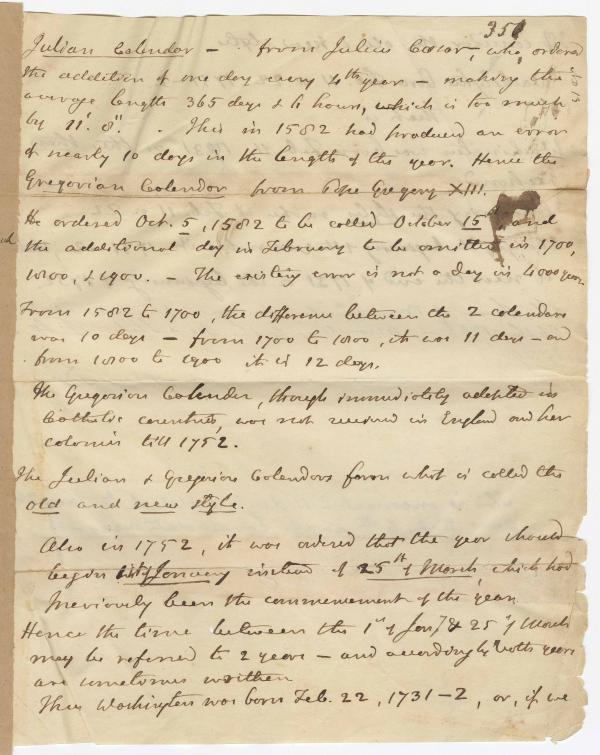 351
Julian Calendar — from Julius Caesar, who ordered
the addition of one day every 4th year — making the
average length 365 days & 6 hours, which is too much
by 11'. 8". . This in 1582 had produced an error
of nearly 10 days in the length of the year. Hence the
Gregorian Calendar from Pope Gregory XIII.
He ordered Oct. 5, 1582 to be called October 15, and
the additional day in February to be omitted in 1700,
1800, & 1900. — The existing error is not a day in 4000 years.
From 1582 to 1700, the difference between the 2 calendars
was 10 days — from 1700 to 1800, it was 11 days — and
from 1800 to 1900 it is 12 days.
The Gregorian Calendar, though immediately adopted in
Catholic countries, was not received in England and her
colonies till 1752.
The Julian & Gregorian Calendars form what is called the
old and new style.
Also in 1752, it was ordered that the year should
begin 1st of January instead of 25th of March, which had
previously been the commencement of the year.
Hence the time between the 1st of Jany & 25th of March
may be referred to 2 years — and accordingly both years
are sometimes written
Thus Washington was born Feb. 22, 1731–2, or, if we